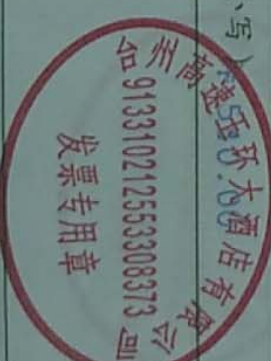 写
台州高速玉环大酒店有限公司
913310212553308373
发票专用章